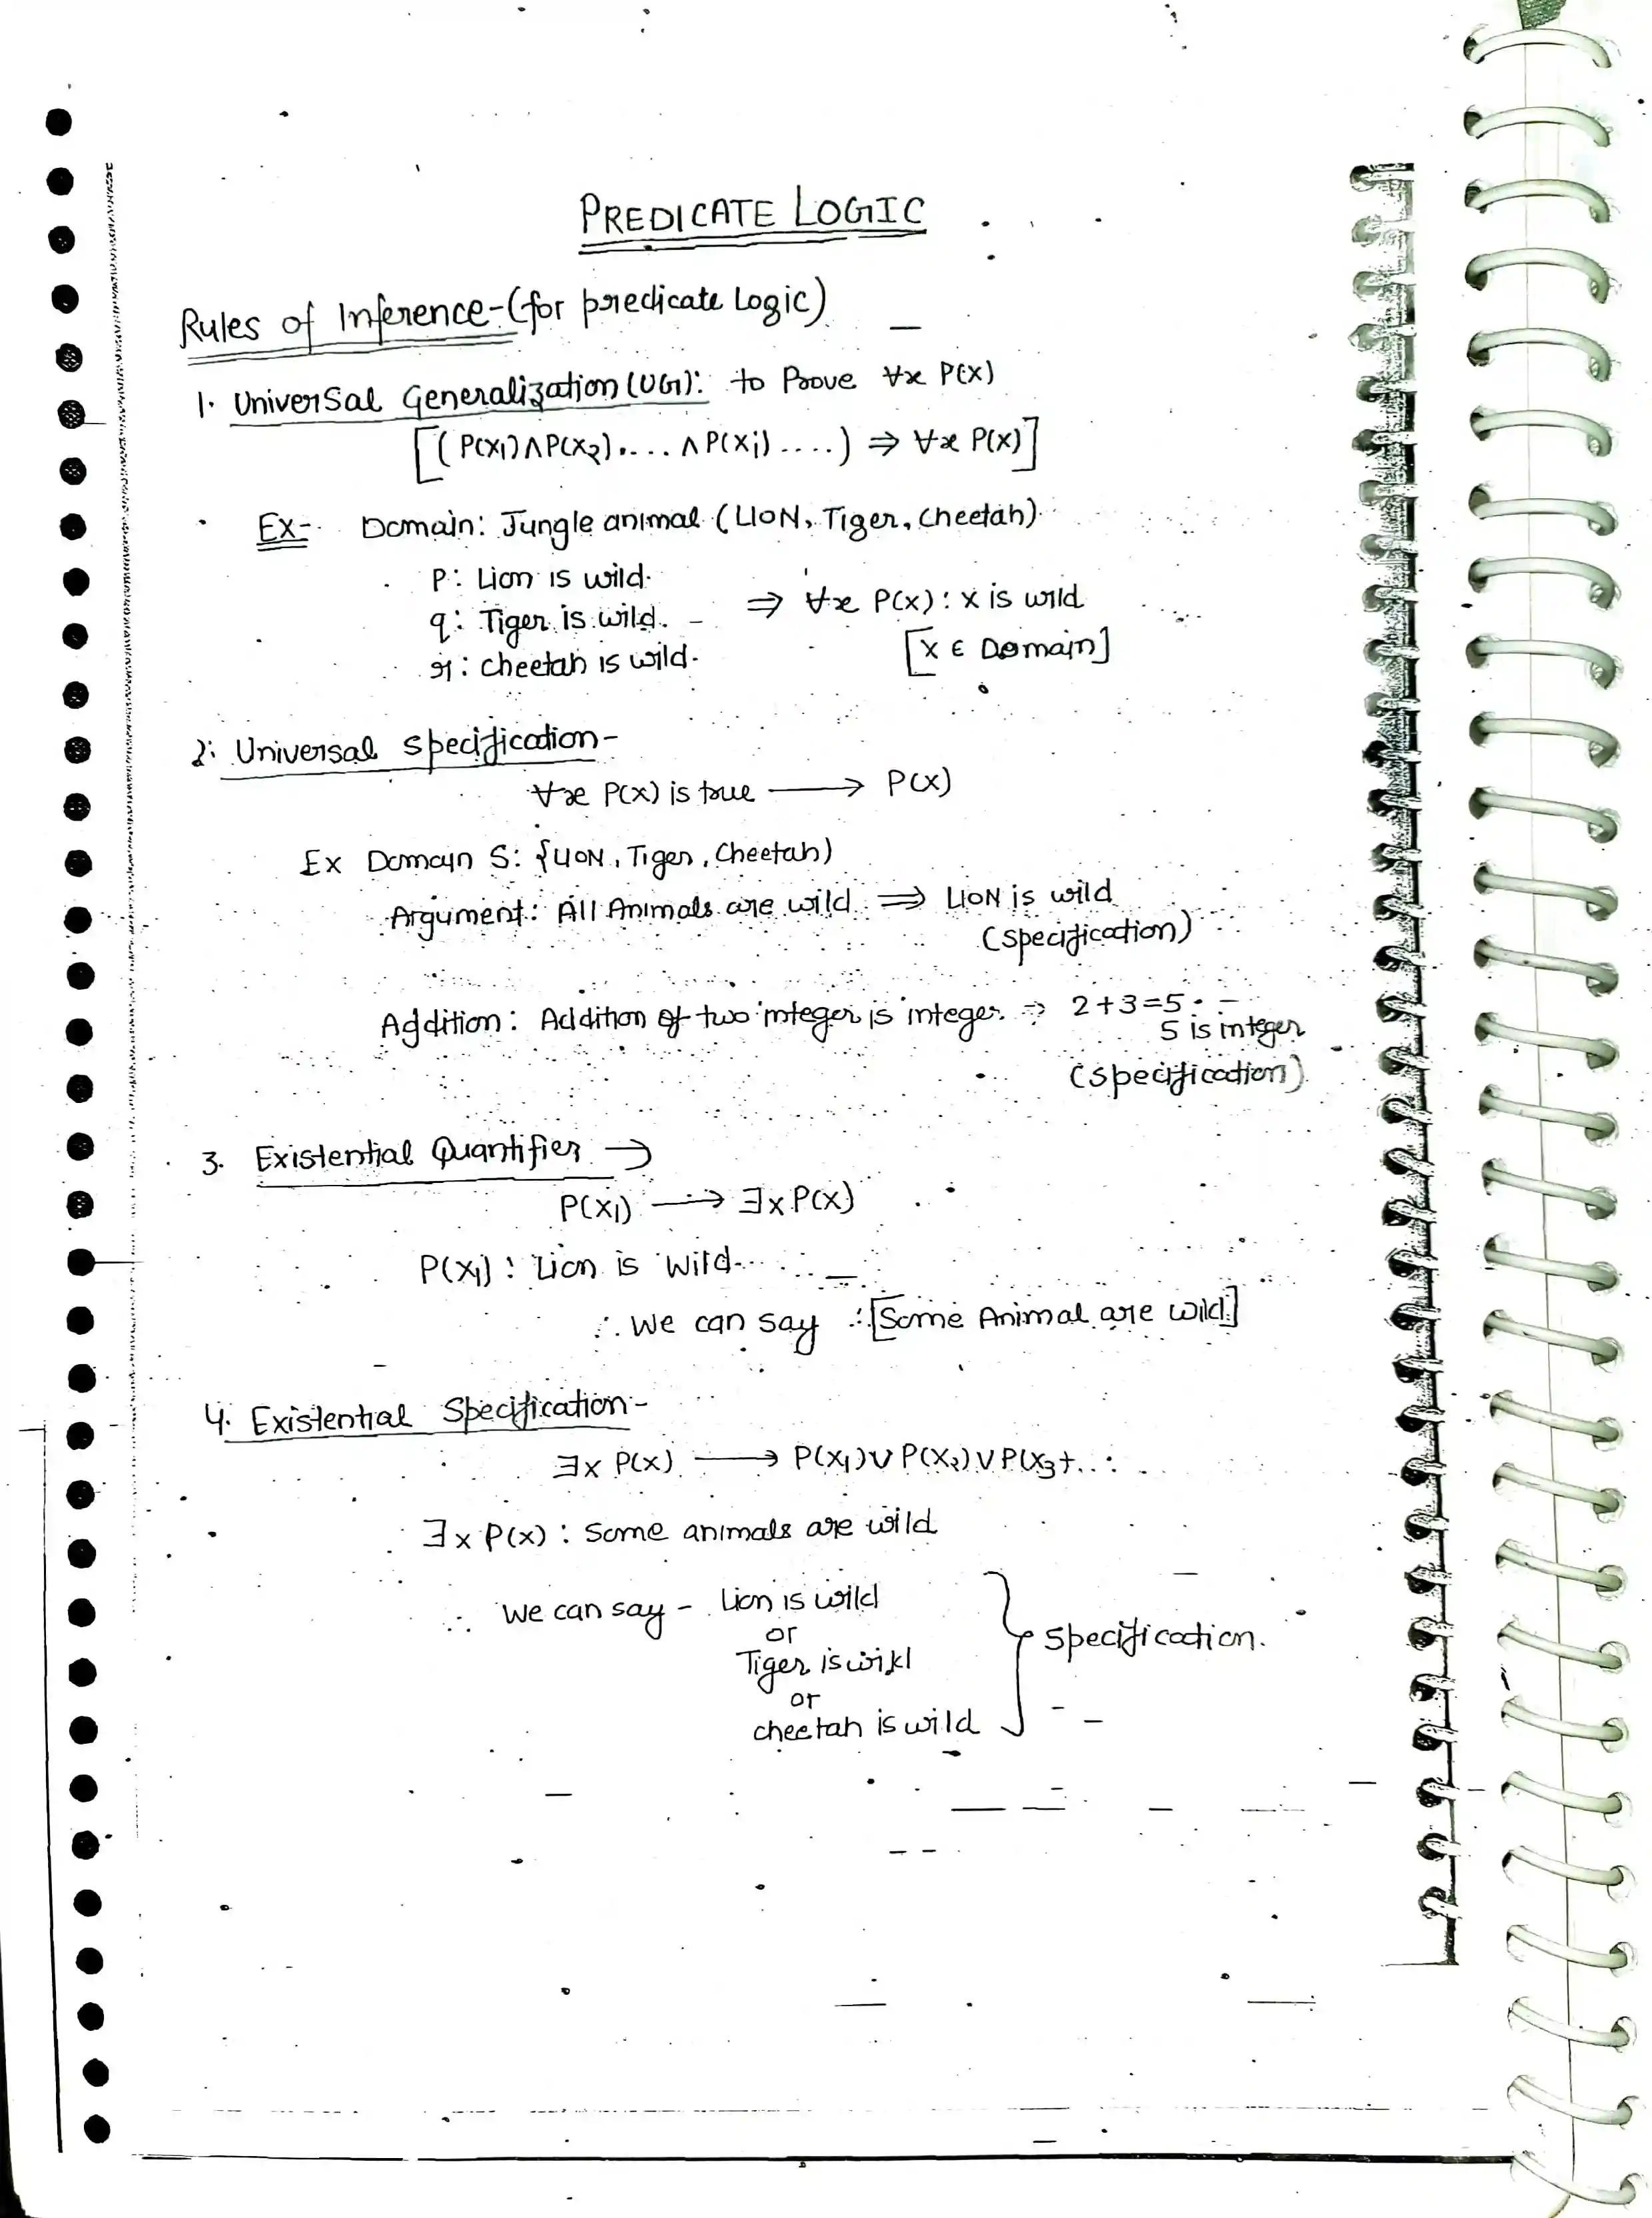 PREDICATE LOGIC
Rules of Inference-(for predicate Logic)
1. Universal Generalization (UG): to Prove ∀x P(x)
[(P(x₁)∧P(x₂).... ∧P(xi) ....) ⇒ ∀x P(x)]
Ex- Domain: Jungle animal (LION, Tiger, Cheetah)
P: Lion is wild.
q: Tiger is wild. ⇒ ∀x P(x): x is wild
r: cheetah is wild. [x ∈ Domain]
2. Universal specification-
∀x P(x) is true ⟶ P(x)
Ex Domain S: {LION, Tiger, Cheetah)
Argument: All Animals are wild ⇒ LION is wild
(specification)
Addition: Addition of two integer is integer ⇒ 2+3=5
5 is integer
(specification)
3. Existential Quantifier →
P(x₁) ⟶ ∃x P(x)
P(x₁): Lion is wild.
∴ We can say :[Some Animal are wild]
4. Existential Specification-
∃x P(x) ⟶ P(x₁)∨P(x₂)∨P(x₃+...
∃x P(x): Some animals are wild
∴ We can say - Lion is wild
or
Tiger is wild } specification.
or
cheetah is wild